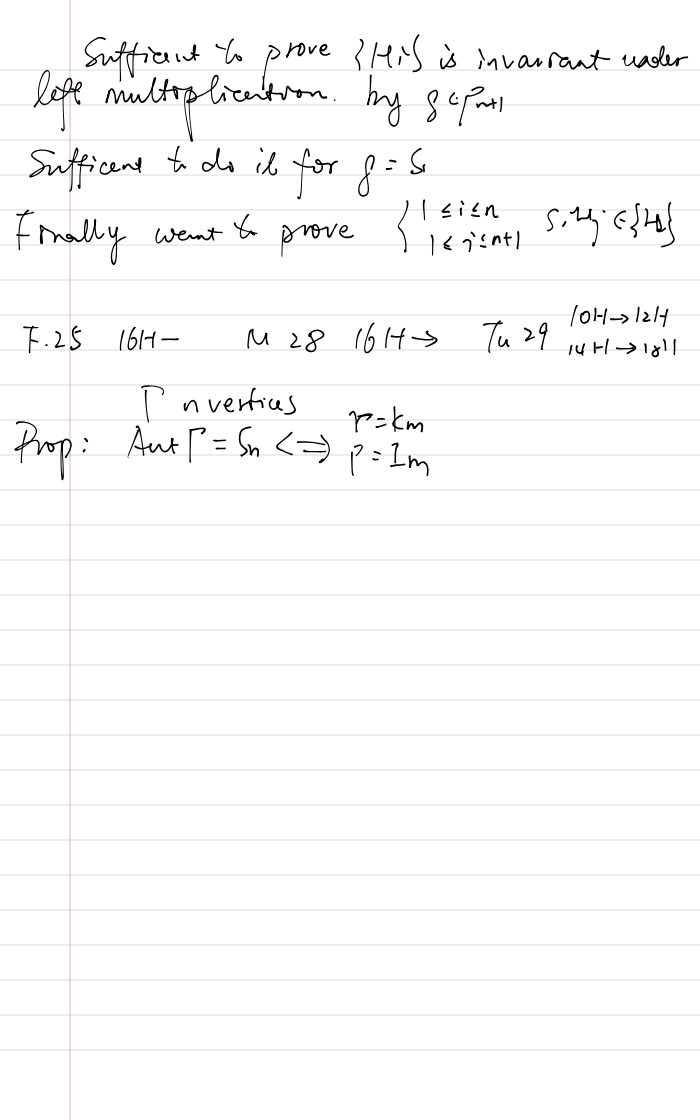 Sufficient to prove {Hi} is invariant under
left multiplication. by g ∈ Pn+1
Sufficent to do it for g = Si
Finally want to prove { 1 ≤ i ≤ n
1 ≤ j ≤ n+1 Si Hj ∈ {Hk}
F. 25 16H – M 28 16H → Tu 29 10H → 12H
14H → 18H
Γ n vertices
Prop: Aut Γ = Sn <=> Γ = Km
Γ = Im